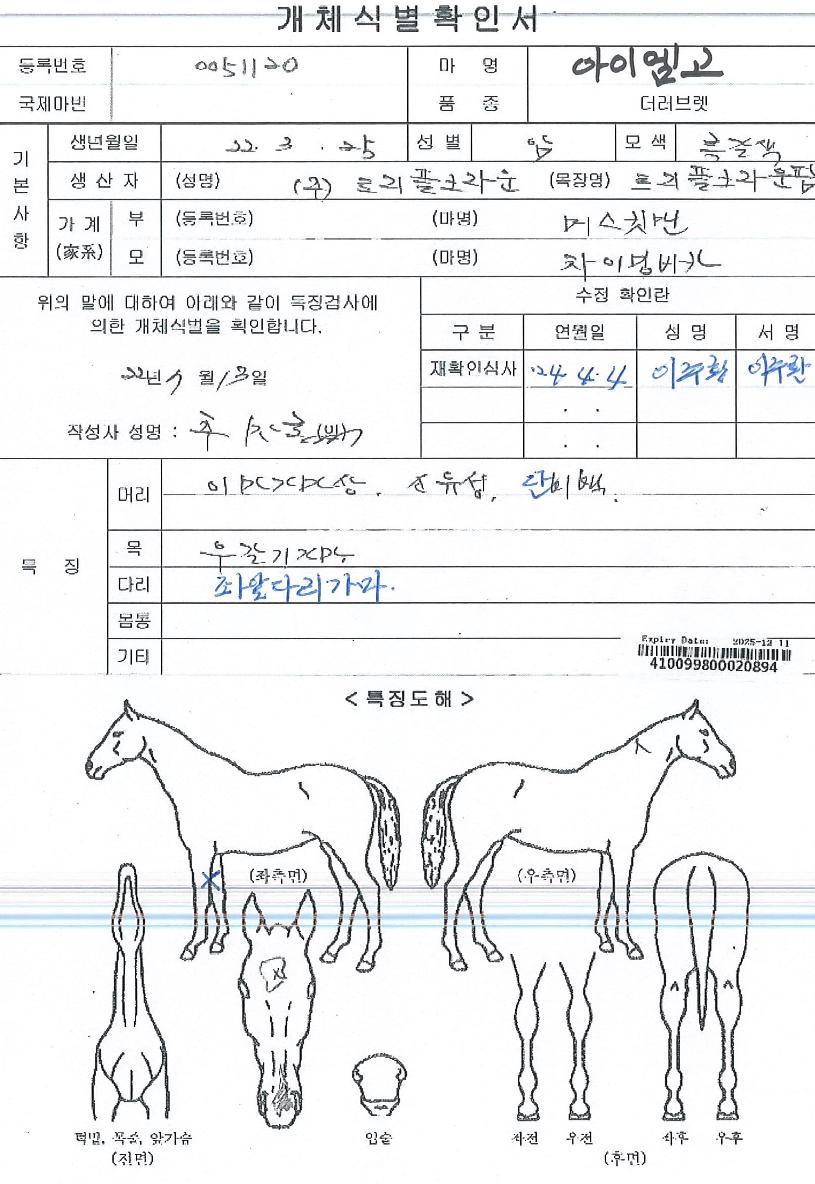 개체식별확인서
등록번호 0051120 마 명 아이엠고
국제마번 품 종 더러브렛
기본사항
생년월일 22. 3. 25 성 별 암 모 색 흑갈색
생 산 자 (성명) (주) 트리플크라운 (목장명) 트리플크라운팜
가 계 (家系) 부 (등록번호) (마명) 머스킷맨
모 (등록번호) (마명) 차이밍비가
위의 말에 대하여 아래와 같이 특징검사에
의한 개체식별을 확인합니다.
22년 월 13일
작성사 성명 :
수정 확인란
구 분 연월일 성 명 서 명
재확인식사 '24. 4. 4 이주환
. .
. .
특 징
머리 . 소유성, 단비백.
목 우갈기
다리 좌앞다리가마.
몸통
기타
Expiry Date: 2025-12-11
410099800020894
< 특징도해 >
(좌측면) (우측면)
턱밑, 목줄, 앞가슴
(전면)
입술
좌전 우전 좌후 우후
(후면)